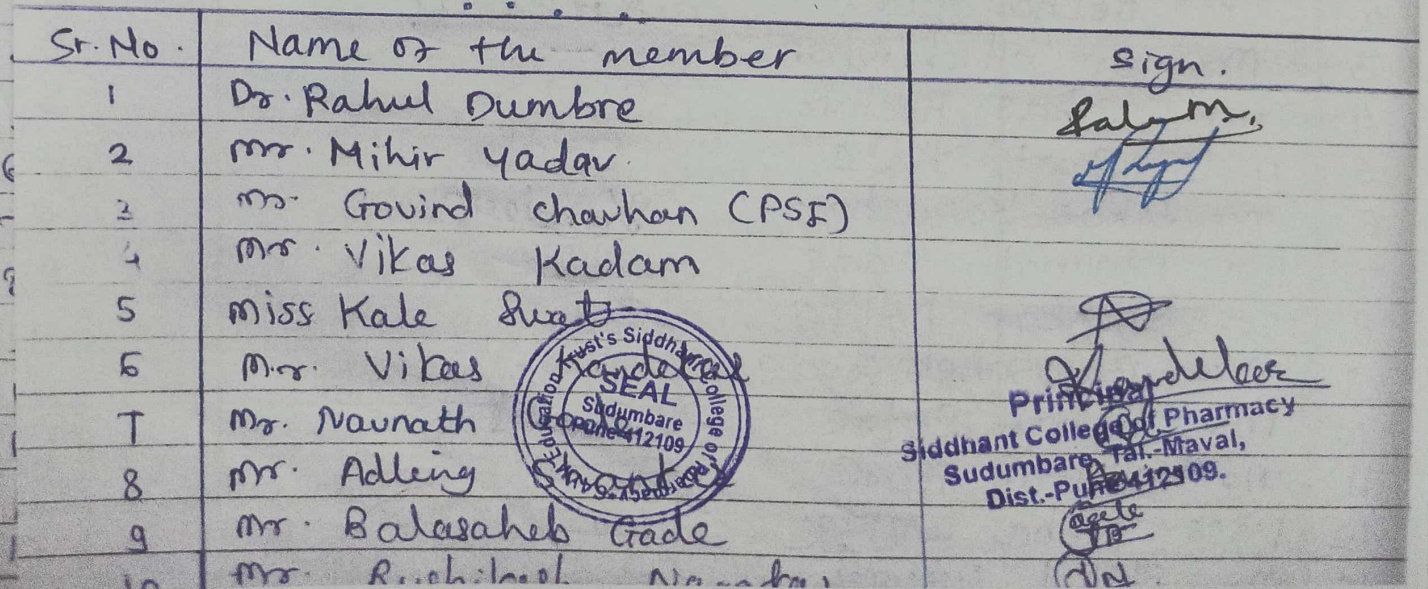 Sr. No. Name of the member Sign.
1 Dr. Rahul Dumbre
2 Mr. Mihir Yadav.
3 Mr. Govind Chavhan (PSI)
4 Mr. Vikas Kadam
5 Miss Kale Swati
6 Mr. Vikas Kandekar
7 Mr. Navnath
8 Mr. Adling
9 Mr. Balasaheb Gade
10 Mr.
Trust's Siddhant College of Pharmacy
SEAL
Sudumbare
Pune-412109
Principal
Siddhant College Of Pharmacy
Sudumbare, Tal.-Maval,
Dist.-Pune-412109.